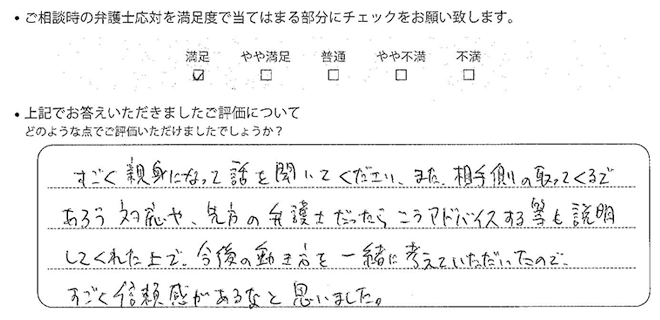 ・ご相談時の弁護士応対を満足度で当てはまる部分にチェックをお願い致します。
満足 やや満足 普通 やや不満 不満
☑ □ □ □ □
・上記でお答えいただきましたご評価について
どのような点でご評価いただけましたでしょうか？
すごく親身になって話を聞いてくださり、また、相手側の取ってくるで
あろう対応や、先方の弁護士だったらこうアドバイスする等も説明
してくれた上で、今後の動き方を一緒に考えていただいたので、
すごく信頼感があるなと思いました。